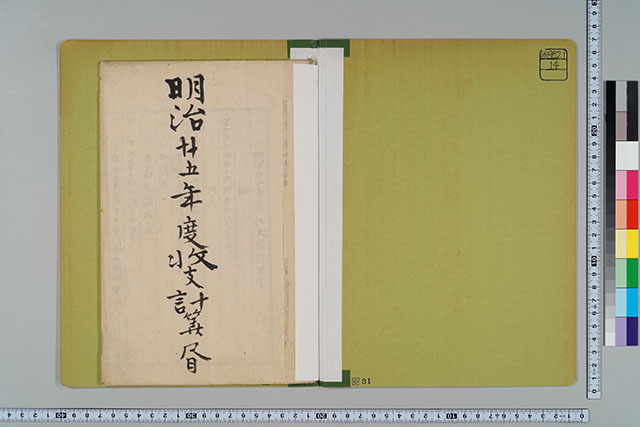 明治廿五年度收支計算書
14
31